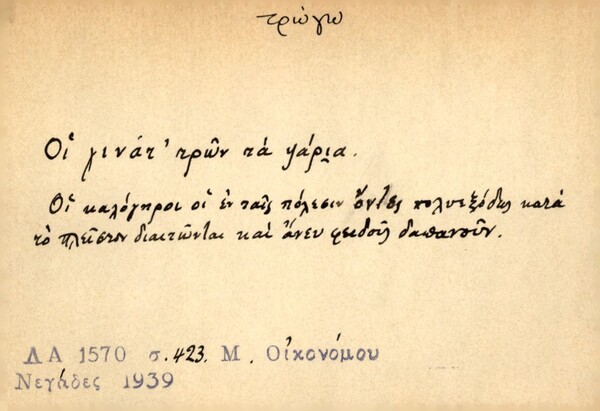 τρώγω
Οἱ γινάτ' τρῶν τά ψάρια.
Οἱ καλόγηροι οἱ ἐν ταῖς πόλεσιν ὄντες πολυεξόδως κατά
τὸ πλεῖστον διαιτῶνται καὶ ἄνευ φειδοῦς δαπανοῦν.
ΛΑ 1570 σ. 423. Μ. Οἰκονόμου
Νεγάδες 1939